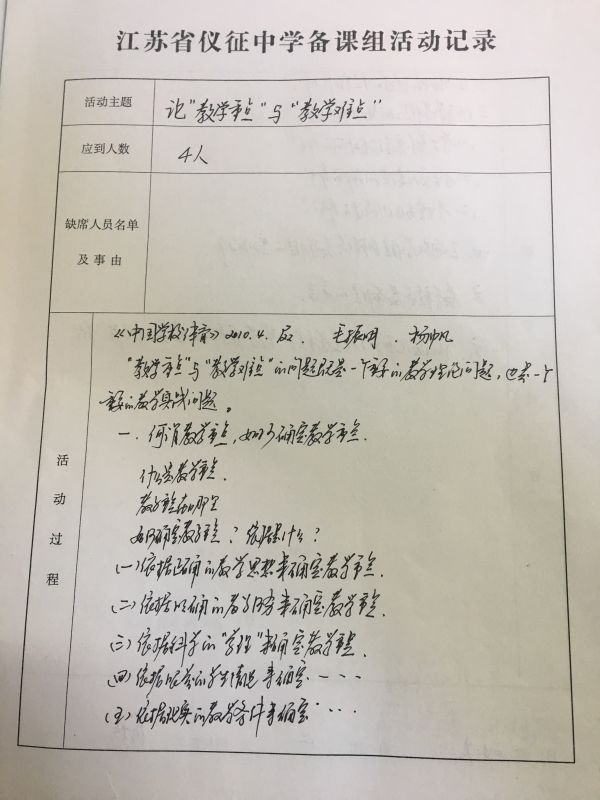 江苏省仪征中学备课组活动记录
活动主题 论"教学重点"与"教学难点"
应到人数 4人
缺席人员名单
及事由
活动过程
《中国学校体育》2010.4. 毛振明 . 杨帆
"教学重点"与"教学难点"的问题既是一个重要的教学理论问题,也是一个
重要的教学实践问题。
一.何谓教学重点,如何确定教学重点.
什么是教学重点.
教学重点在哪里
如何确定教学重点?依据是什么?
(一)依据正确的教学思想来确定教学重点.
(二)依据明确的教学任务来确定教学重点.
(三)依据科学的"学理"来确定教学重点.
(四)依据的学生情况来确定----
(五)依据现实的教学条件来确定····